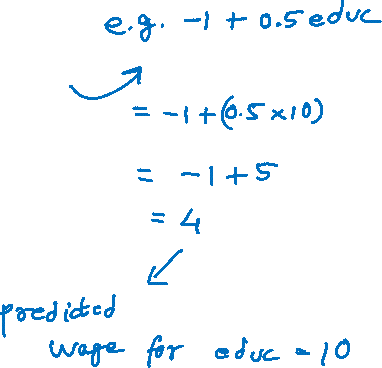 e.g. -1 + 0.5 educ
= -1 + (0.5 × 10)
= -1 + 5
= 4
predicted
wage for educ = 10